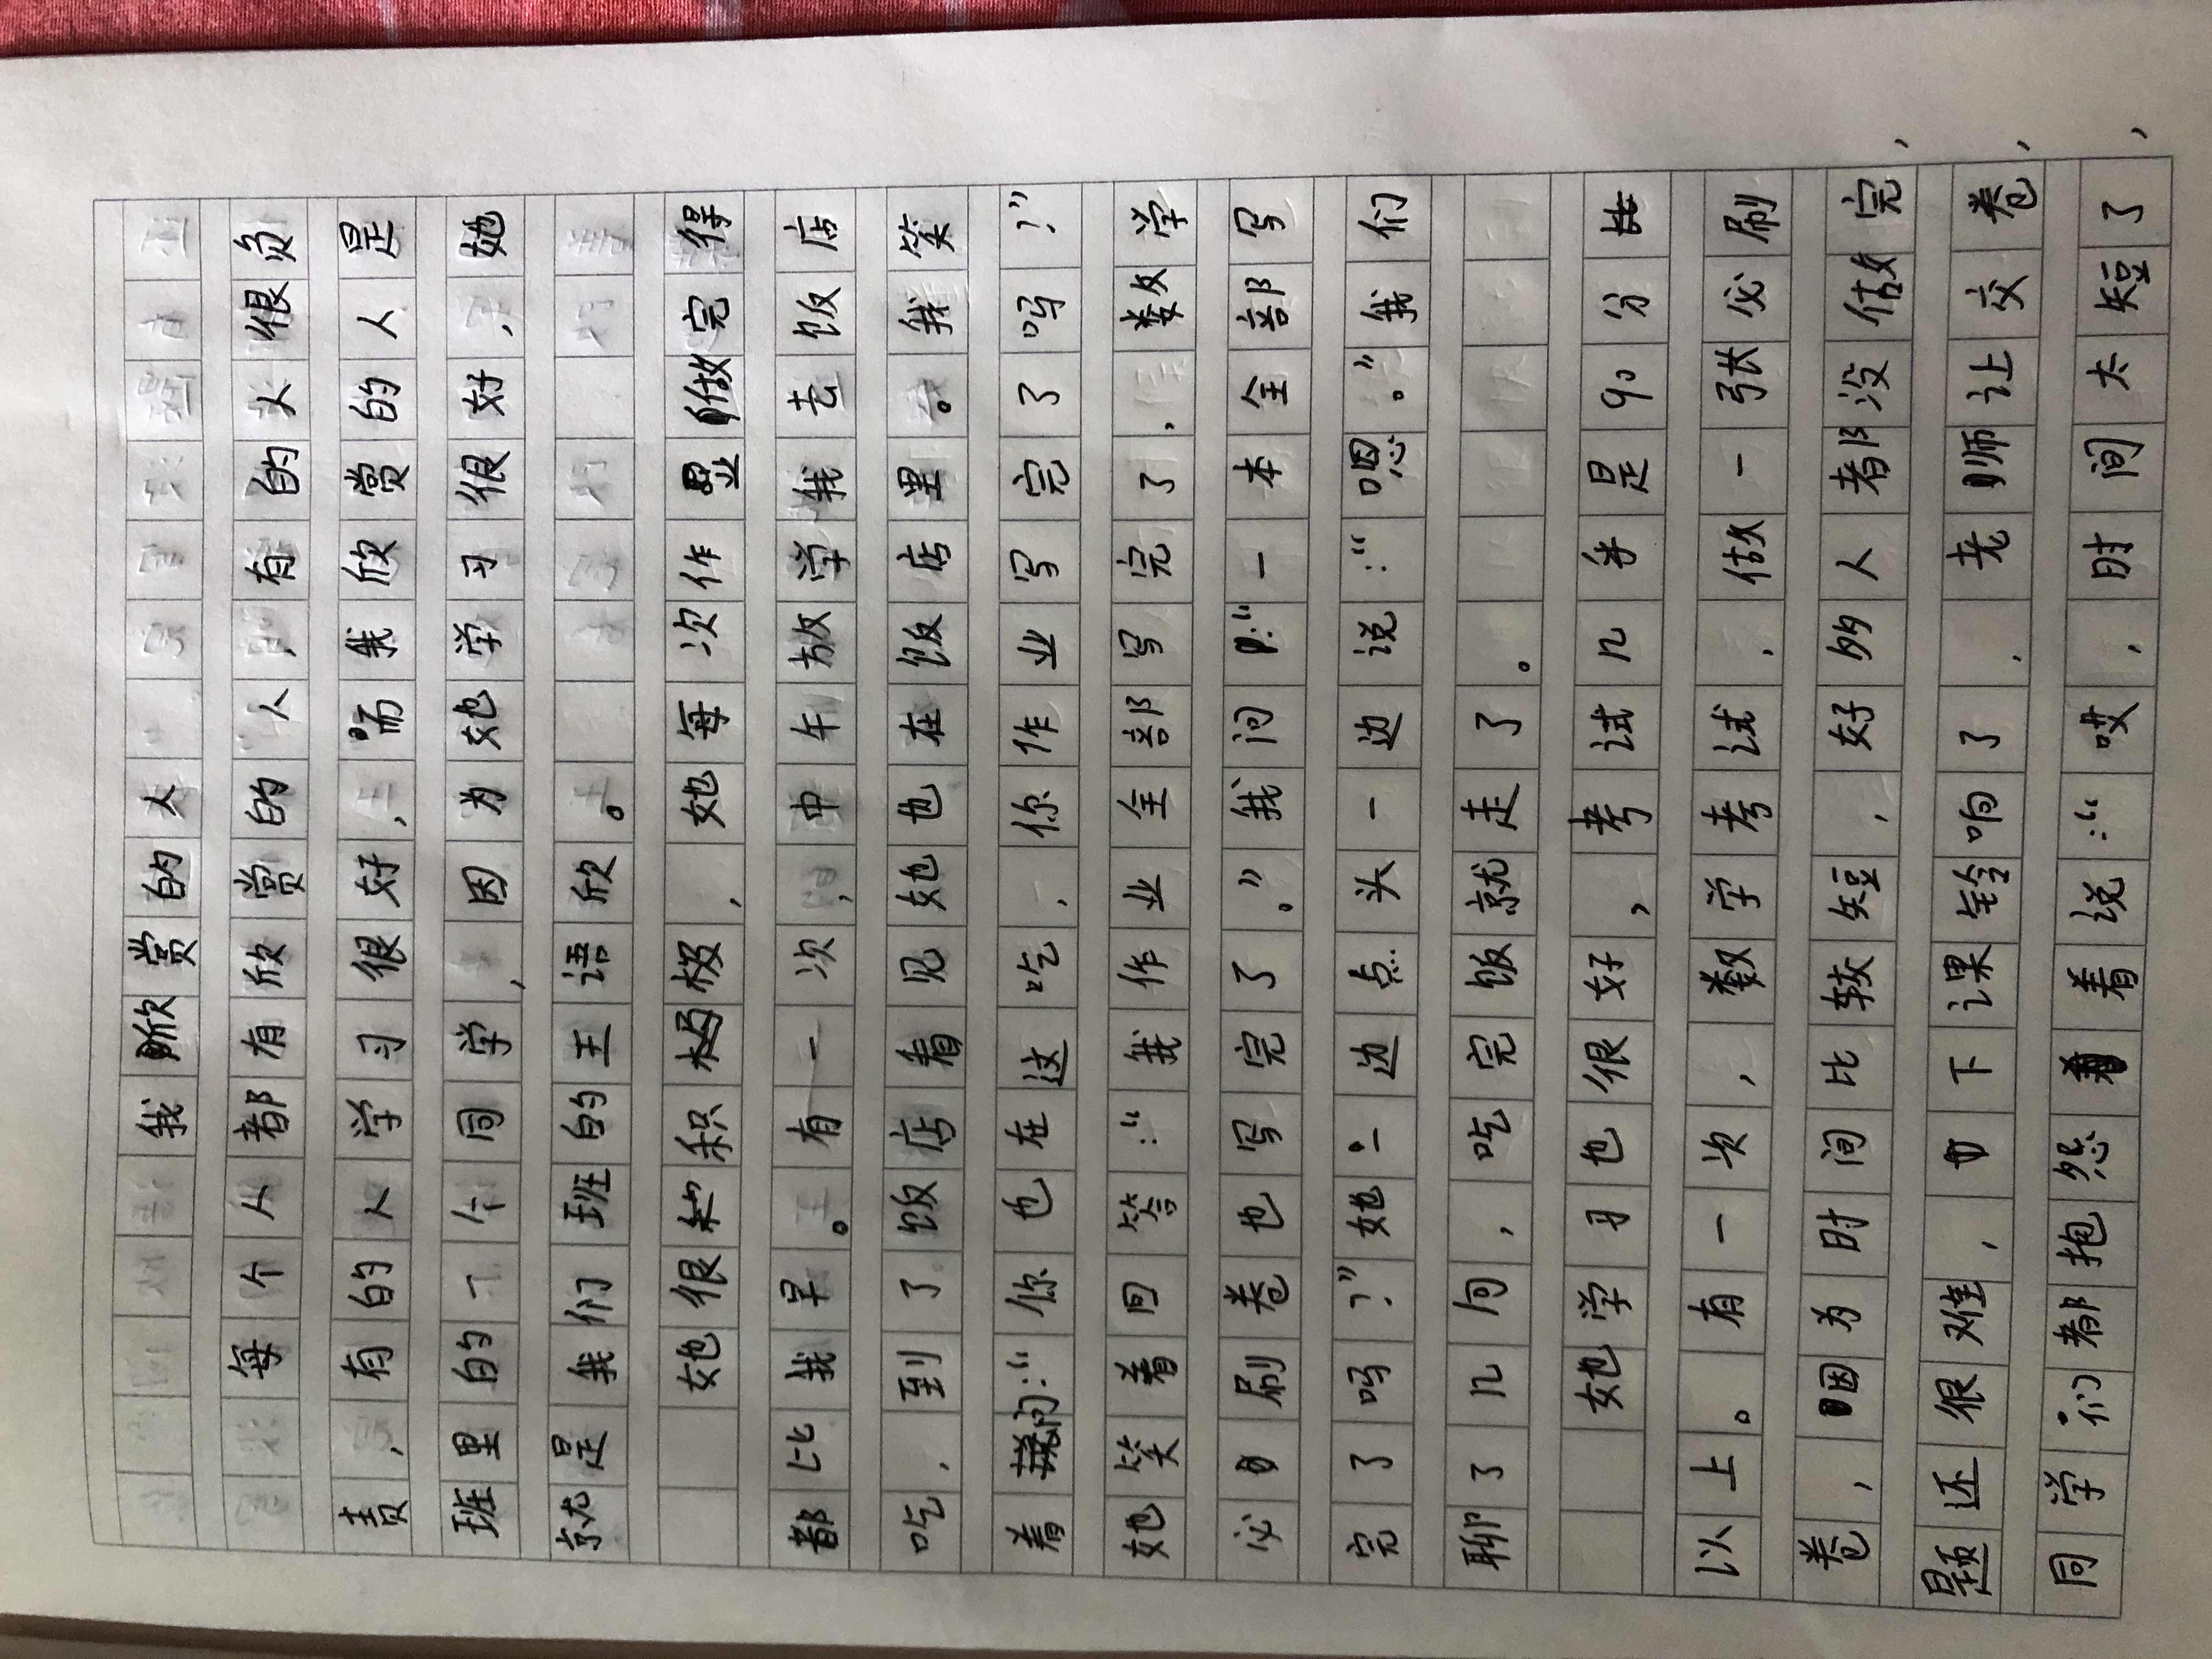 我欣赏的人
每个人都有欣赏的人，有的人很负
责，有的人学习很好，而我欣赏的人是
班里的一个同学，因为她学习很好，她
就是我们班的王语欣。
她很积极，她每次作业做完得
都比我早。有一次，中午放学我去饭店
吃，到了饭店看见她也在饭店里。我笑
着问：“你也在这吃，你作业写完了吗？”
她笑着回答：“我作业全部写完了，数学
必刷卷也写完了。”我问：“一本全部写
完了吗？”她一边点头一边说：“嗯。”我们
聊了几句，吃完饭就走了。
她学习也很好，考试几乎是90分
以上。有一次，数学考试，做一张必刷
卷，因为时间比较短，好多人都没做完，
题还很难，下课铃响了，老师让交卷，
同学们都抱怨着说：“哎，时间太短了，